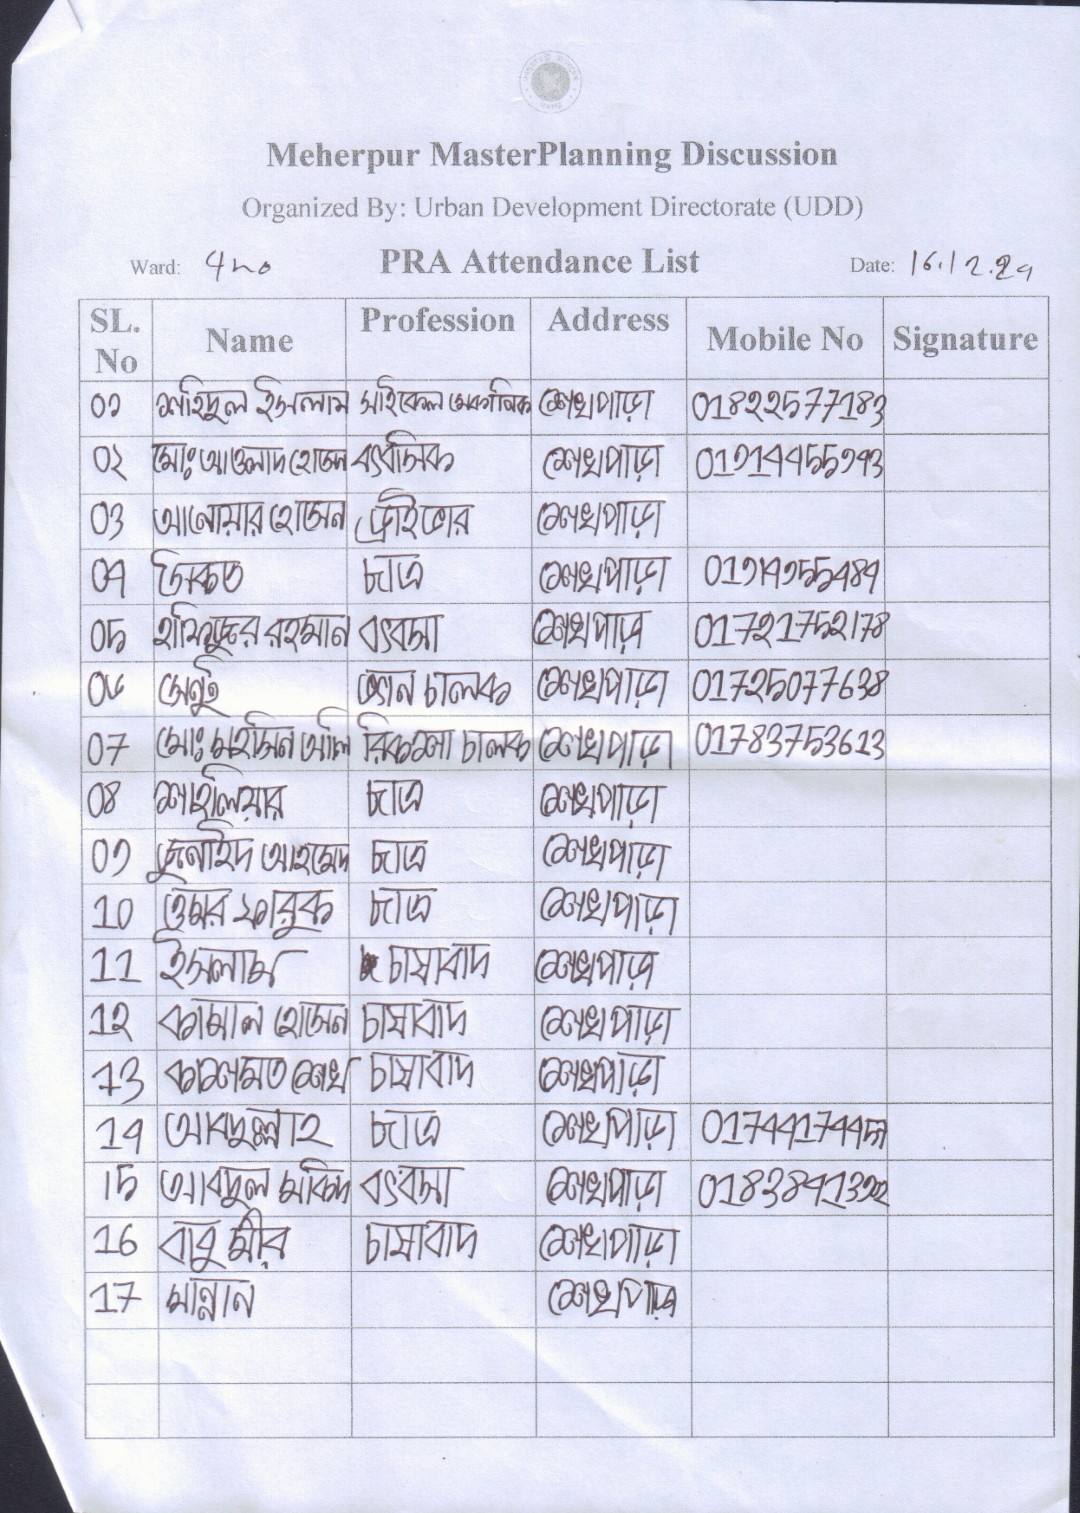 Meherpur MasterPlanning Discussion
Organized By: Urban Development Directorate (UDD)
Ward: 4no PRA Attendance List Date: 16.12.
SL. No Name Profession Address Mobile No Signature
01 শহিদুল ইসলাম সাইকেল মেকানিক শেখপাড়া 01822577183
০২ মোঃ আওলাদ হোসেন ব্যবসিক শেখপাড়া
03 আনোয়ার হোসেন ড্রাইভার শেখপাড়া
04 ছাত্র শেখপাড়া
05 হাফিজুর রহমান ব্যবসা শেখপাড়া 01721752178
06 সেন্টু ভ্যান চালক শেখপাড়া 01725077638
07 মোঃ মহসিন আলি রিকশা চালক শেখপাড়া 01783753613
08 শাহলিয়ার ছাত্র শেখপাড়া
09 জুনাইদ আহমেদ ছাত্র শেখপাড়া
10 ওমর ফারুক ছাত্র শেখপাড়া
11 ইসলাম চাষাবাদ শেখপাড়া
12 কামাল হোসেন চাষাবাদ শেখপাড়া
13 শেখ চাষাবাদ শেখপাড়া
14 আবদুল্লাহ ছাত্র শেখপাড়া
15 আবদুল ব্যবসা শেখপাড়া
16 বাবু মীর চাষাবাদ শেখপাড়া
17 মান্নান শেখপাড়া